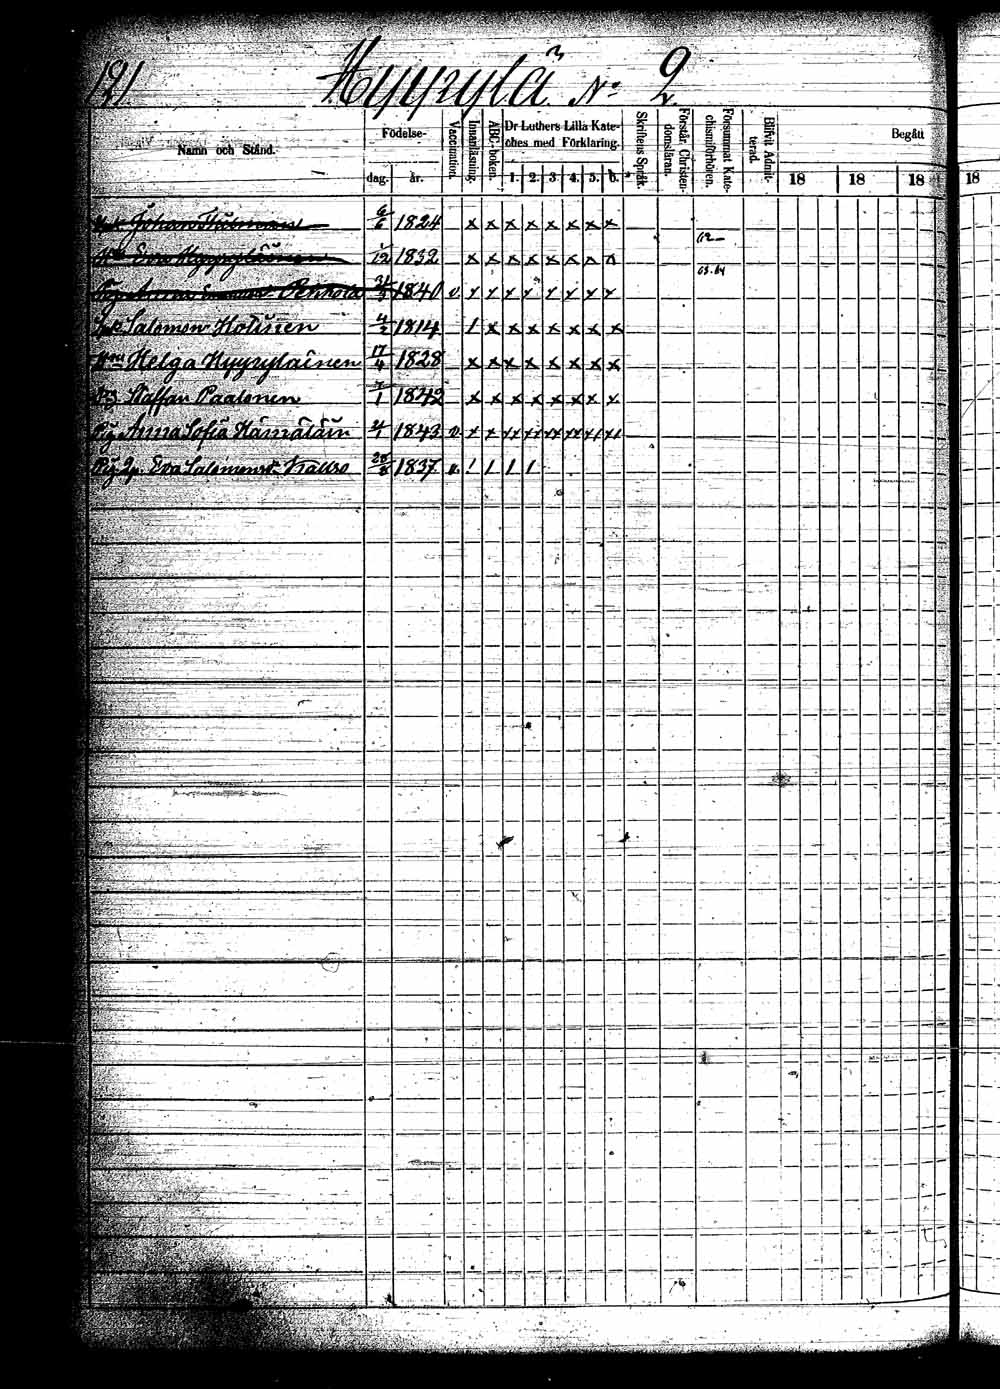 121 Hyyrylä No 2
Namn och Stånd.
Födelse-
dag. år.
Vaccination.
Innanläsning.
ABC boken.
Dr Luthers Lilla Kate-
ches med Förklaring.
1. 2. 3. 4. 5. 6.
Skriftens Språk.
Förstår Christen-
domsläran.
Försummat Kate-
chismiförhören.
Blifvit Admit-
terad.
Begått
18 18 18 18
Johan 6/6 1824 x x x x x x x x
Eva Hyyryläinen /12 1832 x x x x x x x x 62
Anna 1840 v. 63.64
Salomon Holinen 4/2 1814 / x x x x x x x
Helga Hyyryläinen 17/4 1828 x x x x x x x x
Staffan Paalonen 7/1 1842 x x x x x x x x
Pig. Anna Sofia Hämäläin 1843 v.
Pig. Eva Salomonsd. 28/8 1837 v. / / / /